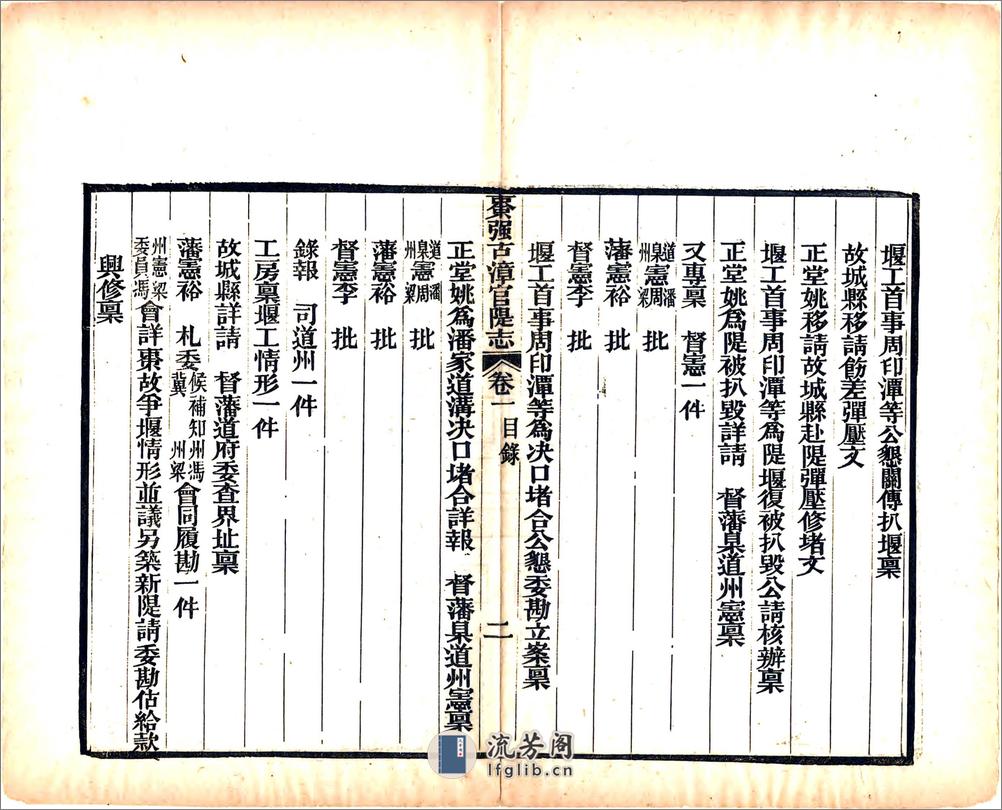 堰工首事周印潭等公懇關傳扒堰稟
故城縣移請飭差彈壓文
正堂姚移請故城縣赴隄彈壓修堵文
堰工首事周印潭等為隄堰復被扒毀公請核辦稟
正堂姚為隄被扒毀詳請　督藩臬道州憲稟
又專稟　督憲一件
道潘臬憲周州梁　批
藩憲裕　批
督憲李　批
堰工首事周印潭等為决口堵合公懇委勘立案稟
棗强古漳官隄志　卷一　目錄　二
正堂姚為潘家道溝决口堵合詳報　督藩臬道州憲稟
道潘臬憲周州梁　批
藩憲裕　批
督憲李　批
錄報　司道州一件
工房稟堰工情形一件
故城縣詳請　督藩道府委查界址稟
藩憲裕　札委候補知州馮冀州梁會同履勘一件
州憲梁委員馮會詳棗故爭堰情形並議另築新隄請委勘估給款
興修稟
流芳阁
lfglib.cn